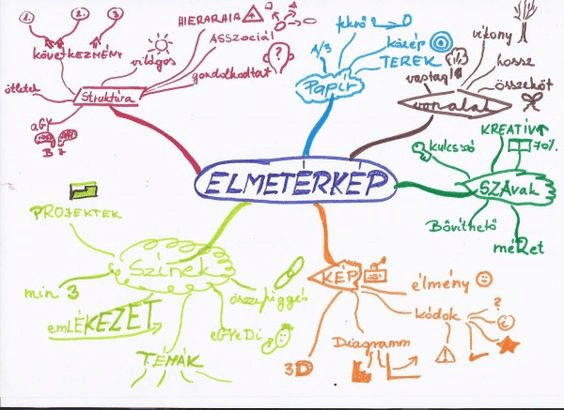 ELMETÉRKÉP
Struktúra
1. 2. 3.
KÖVETKEZMÉNY
világos
HIERARHIA
ASSZOCIÁL
gondolkodtat
ötletek
aGY
B J
Papír
A/3
fekvő
közép
TEREK
vonalak
vékony
vastag
hossz
összeköt
SZAvak
KREATÍV
70%
kulcsszó
Bővíthető
méRet
KÉP
élmény
kódok
?
!
Diagramm
3D
Színek
PROJEKTEK
min 3
emLÉKEZET
TÉMÁK
eGYeDi
összefüggés